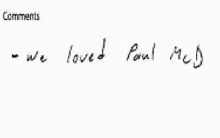 Comments
- we loved Paul McD